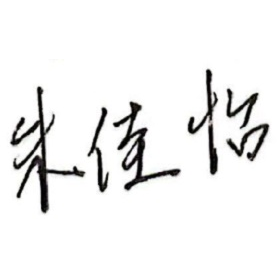 朱佳怡